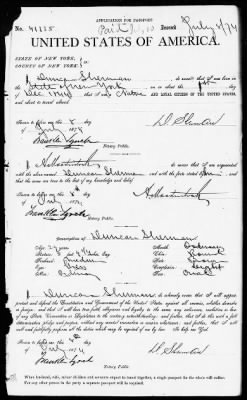 APPLICATION FOR PASSPORT
No. 41115 Issued July 9/74
UNITED STATES OF AMERICA.
STATE OF NEW YORK,
COUNTY OF NEW YORK,
I, Duncan Sherman do swear that I was born in
State of New York on the
AND LOYAL CITIZEN OF THE UNITED STATES,
and about to travel abroad.
Sworn to before me this 8
day of July 1874
Franklin Lynch
Notary Public.
I, do swear that I am acquainted
with the above named Duncan Sherman and with the facts stated by him and
that the same are true to the best of my knowledge and belief.
Sworn to before me this 8th
day of July 1874
Franklin Lynch
Notary Public.
Description of Duncan Sherman
Age, 29 years
Mouth, Ordinary
Stature, 5 feet
Chin, Round
Forehead, Medium
Hair,
Eyes, Grey
Complexion,
Nose,
Face, Oval
I, Duncan Sherman do solemnly swear that I will support,
protect and defend the Constitution and Government of the United States against all enemies, whether domestic
or foreign; and that I will bear true faith, allegiance and loyalty to the same, any ordinance, resolution or law
of any State, Convention or Legislature to the contrary notwithstanding; and further, that I do this with a full
determination, pledge and purpose, without any mental reservation or evasion whatsoever; and further, that I will
well and faithfully perform all the duties which may be required of me by law. So help me God.
Sworn to before me this 8th
day of July 1874
Franklin Lynch
Notary Public.
When husband, wife, minor children and servants expect to travel together, a single passport for the whole will suffice.
For any other person in the party a separate passport will be required.